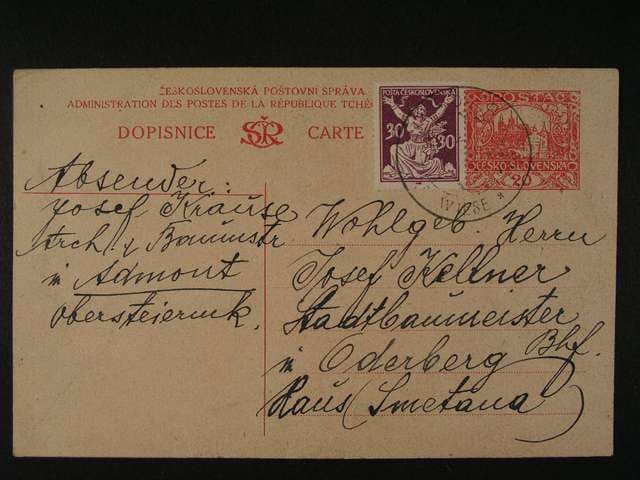 ČESKOSLOVENSKÁ POŠTOVNÍ SPRÁVA
ADMINISTRATION DES POSTES DE LA RÉPUBLIQUE TCHÉ
DOPISNICE ČSR CARTE
POŠTA ČESKOSLOVENSKÁ
30 30
POŠTA
ČESKO-SLOVENSKÁ
20
Absender:
Josef Krause
Arch & Baumstr
in Admont
Obersteiermk.
Wohlgeb. Herrn
Josef Kellner
Stadtbaumeister
in Oderberg Bhf.
Haus Smetana